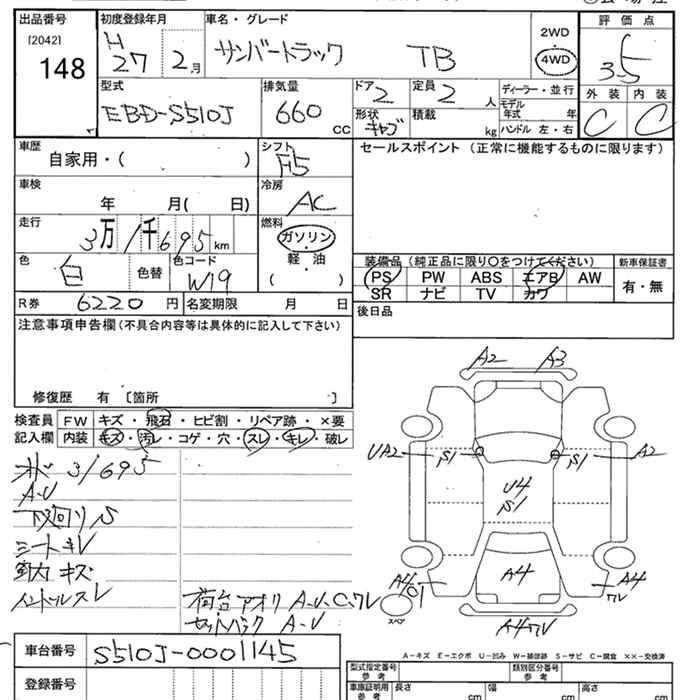 出品番号 初度登録年月 車名・グレード 評価点
[2042] 148 H 27 2月 サンバートラック TB 2WD 4WD 3.5
型式 排気量 ドア 2 定員 2人 ディーラー・並行 外装 内装
EBD-S510J 660 CC 形状 キャブ 積載 kg モデル年式 年 C C
ハンドル 左・右
車歴 自家用・( ) シフト F5 セールスポイント (正常に機能するものに限ります)
車検 年 月( 日) 冷房 AC
走行 3万1千695km 燃料 ガソリン・軽油 ( )
色 白 色替 色コード W19
装備品 (純正品に限り○をつけてください) 新車保証書
PS PW ABS エアB AW 有・無
SR ナビ TV カワ
R券 6220円 名変期限 月 日 後日品
注意事項申告欄(不具合内容等は具体的に記入して下さい)
修復歴 有 〔箇所 〕
検査員 FW キズ・飛石・ヒビ割・リペア跡・×要
記入欄 内装 キズ・汚レ・コゲ・穴・スレ・キレ・破レ
31695
A・U
下廻り S
シートキレ
キズ
ハンドルスレ
荷台アオリ A.U.C.ワレ
A・U
A2 A3
UA2 S1 S1 A2
U4
S1
A4 C1 A4 A4 ワレ
スペア
A4ワレ
車台番号 S510J-0001145
登録番号
A-キズ E-エクボ U-凹み W-補修跡 S-サビ C-腐食 ××-交換済
型式指定番号 参考 類別区分番号 参考
車庫証明用 参考 長さ cm 幅 cm 高さ cm